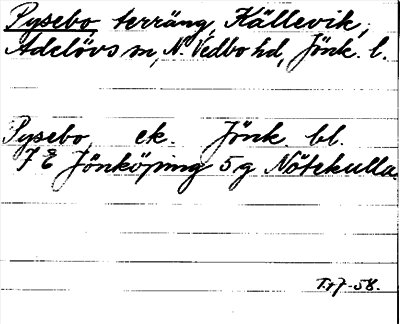 Pysebo, terräng, Källevik,
Adelövs sn, N. Vedbo hd, Jönk. l.
Pysebo, ek. Jönk. bl.
7 E Jönköping 5 g Nötekulla.